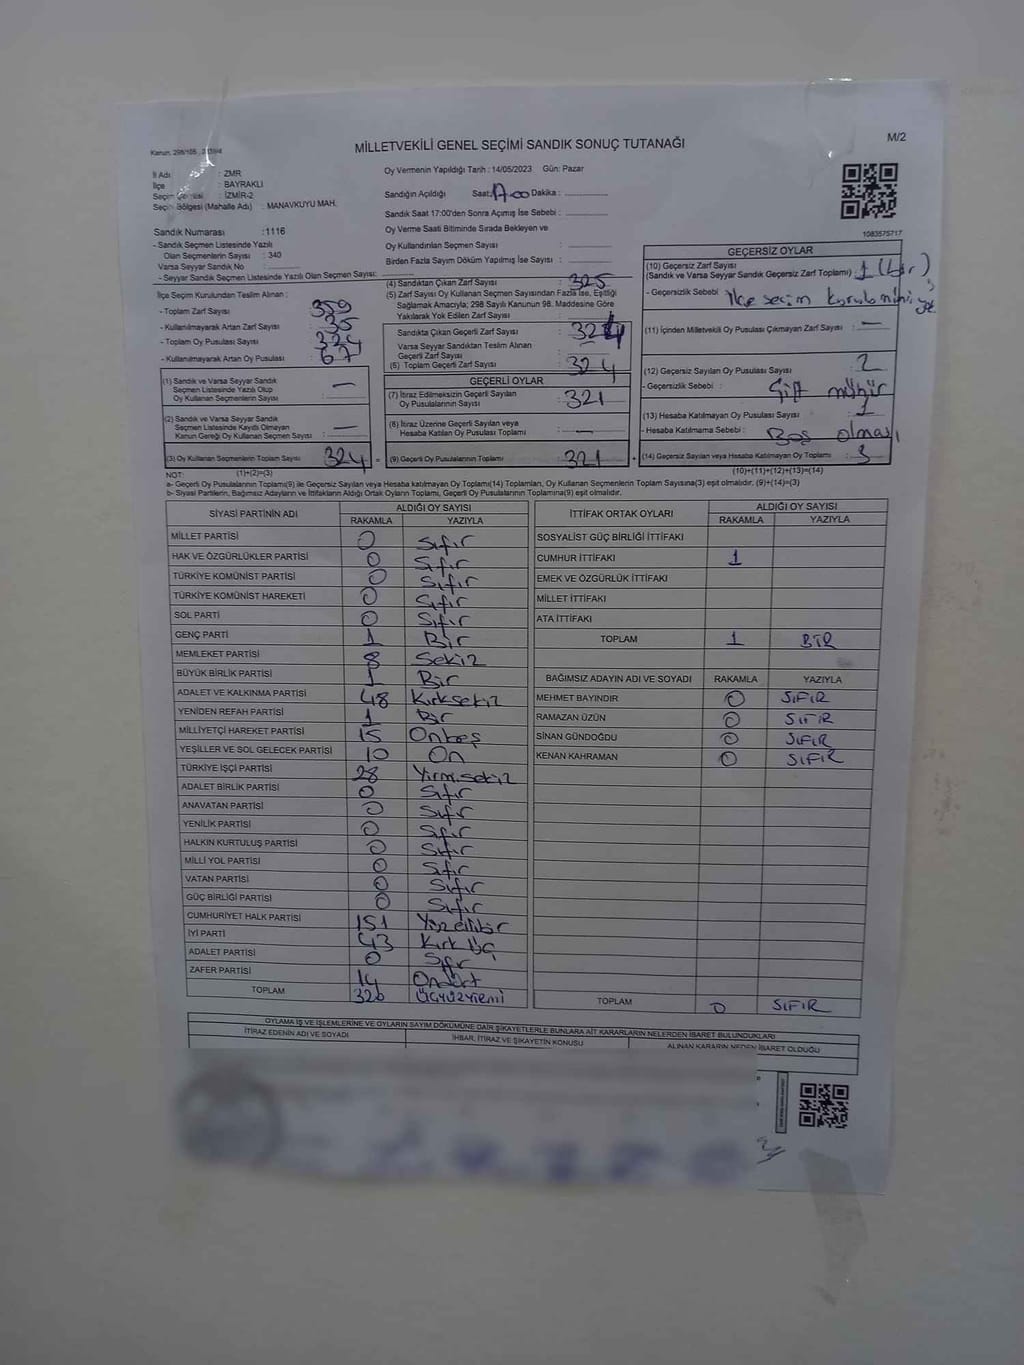 MİLLETVEKİLİ GENEL SEÇİMİ SANDIK SONUÇ TUTANAĞI
M/2
Kanun: 298/105
İl Adı : ZMR
İlçe : BAYRAKLI
: İZMİR-2
Seçim Bölgesi (Mahalle Adı) : MANAVKUYU MAH.
Sandık Numarası : 1116
- Sandık Seçmen Listesinde Yazılı
Olan Seçmenlerin Sayısı : 340
Varsa Seyyar Sandık No
- Seyyar Sandık Seçmen Listesinde Yazılı Olan Seçmen Sayısı:
Oy Vermenin Yapıldığı Tarih : 14/05/2023 Gün: Pazar
Sandığın Açıldığı Saat: 17.00 Dakika :
Sandık Saat 17:00'den Sonra Açımış İse Sebebi :
Oy Verme Saati Bitiminde Sırada Bekleyen ve
Oy Kullandırılan Seçmen Sayısı :
Birden Fazla Sayım Döküm Yapılmış İse Sayısı :
1083575717
İlçe Seçim Kurulundan Teslim Alınan :
- Toplam Zarf Sayısı : 359
- Kullanılmayarak Artan Zarf Sayısı : 35
- Toplam Oy Pusulası :
- Kullanılmayarak Artan Oy Pusulası : 67
(1) Sandık ve Varsa Seyyar Sandık
Seçmen Listesinde Yazılı Olup
Oy Kullanan Seçmenlerin Sayısı : —
(2) Sandık ve Varsa Seyyar Sandık
Seçmen Listesinde Kayıtlı Olmayan
Kanun Gereği Oy Kullanan Seçmen Sayısı : —
(3) Oy Kullanan Seçmenlerin Toplam Sayısı : 324 =
(4) Sandıktan Çıkan Zarf Sayısı : 325
(5) Zarf Sayısı Oy Kullanan Seçmen Sayısından Fazla İse, Eşitliği
Sağlamak Amacıyla; 298 Sayılı Kanunun 98. Maddesine Göre
Yakılarak Yok Edilen Zarf Sayısı : —
Sandıkta Çıkan Geçerli Zarf Sayısı : 324
Varsa Seyyar Sandıktan Teslim Alınan
Geçerli Zarf Sayısı :
(6) Toplam Geçerli Zarf Sayısı : 324
GEÇERLİ OYLAR
(7) İtiraz Edilmeksizin Geçerli Sayılan
Oy Pusulalarının Sayısı : 321
(8) İtiraz Üzerine Geçerli Sayılan veya
Hesaba Katılan Oy Pusulası Toplamı : —
(9) Geçerli Oy Pusulalarının Toplamı : 321 +
GEÇERSİZ OYLAR
(10) Geçersiz Zarf Sayısı
(Sandık ve Varsa Seyyar Sandık Geçersiz Zarf Toplamı) : 1 (bir)
- Geçersizlik Sebebi : İlçe seçim kurulu mührü yok
(11) İçinden Milletvekili Oy Pusulası Çıkmayan Zarf Sayısı : —
(12) Geçersiz Sayılan Oy Pusulası Sayısı : 2
- Geçersizlik Sebebi : Çift mühür
(13) Hesaba Katılmayan Oy Pusulası Sayısı : 1
- Hesaba Katılmama Sebebi : Boş olması
(14) Geçersiz Sayılan veya Hesaba Katılmayan Oy Toplamı : 3
NOT: (1)+(2)=(3)
(10)+(11)+(12)+(13)=(14)
a- Geçerli Oy Pusulalarının Toplamı(9) ile Geçersiz Sayılan veya Hesaba katılmayan Oy Toplamı(14) Toplamları, Oy Kullanan Seçmenlerin Toplam Sayısına(3) eşit olmalıdır, (9)+(14)=(3)
b- Siyasi Partilerin, Bağımsız Adayların ve İttifakların Aldığı Ortak Oyların Toplamı, Geçerli Oy Pusulalarının Toplamına(9) eşit olmalıdır.
SİYASİ PARTİNİN ADI ALDIĞI OY SAYISI
RAKAMLA YAZIYLA
MİLLET PARTİSİ 0 Sıfır
HAK VE ÖZGÜRLÜKLER PARTİSİ 0 Sıfır
TÜRKİYE KOMÜNİST PARTİSİ 0 Sıfır
TÜRKİYE KOMÜNİST HAREKETİ 0 Sıfır
SOL PARTİ 0 Sıfır
GENÇ PARTİ 1 Bir
MEMLEKET PARTİSİ 8 Sekiz
BÜYÜK BİRLİK PARTİSİ 1 Bir
ADALET VE KALKINMA PARTİSİ 48 Kırksekiz
YENİDEN REFAH PARTİSİ 1 Bir
MİLLİYETÇİ HAREKET PARTİSİ 15 Onbeş
YEŞİLLER VE SOL GELECEK PARTİSİ 10 On
TÜRKİYE İŞÇİ PARTİSİ 28 Yirmisekiz
ADALET BİRLİK PARTİSİ 0 Sıfır
ANAVATAN PARTİSİ 0 Sıfır
YENİLİK PARTİSİ 0 Sıfır
HALKIN KURTULUŞ PARTİSİ 0 Sıfır
MİLLİ YOL PARTİSİ 0 Sıfır
VATAN PARTİSİ 0 Sıfır
GÜÇ BİRLİĞİ PARTİSİ 0 Sıfır
CUMHURİYET HALK PARTİSİ 151 Yüzellibir
İYİ PARTİ 43 Kırk Üç
ADALET PARTİSİ 0 Sıfır
ZAFER PARTİSİ 14 Ondört
TOPLAM 320 ÜÇYÜZYİRMİ
İTTİFAK ORTAK OYLARI ALDIĞI OY SAYISI
RAKAMLA YAZIYLA
SOSYALİST GÜÇ BİRLİĞİ İTTİFAKI
CUMHUR İTTİFAKI 1
EMEK VE ÖZGÜRLÜK İTTİFAKI
MİLLET İTTİFAKI
ATA İTTİFAKI
TOPLAM 1 BİR
BAĞIMSIZ ADAYIN ADI VE SOYADI RAKAMLA YAZIYLA
MEHMET BAYINDIR 0 SIFIR
RAMAZAN ÜZÜN 0 SIFIR
SİNAN GÜNDOĞDU 0 SIFIR
KENAN KAHRAMAN 0 SIFIR
TOPLAM 0 SIFIR
OYLAMA İŞ VE İŞLEMLERİNE VE OYLARIN SAYIM DÖKÜMÜNE DAİR ŞİKAYETLERLE BUNLARA AİT KARARLARIN NELERDEN İBARET BULUNDUKLARI
İTİRAZ EDENİN ADI VE SOYADI İHBAR, İTİRAZ VE ŞİKAYETİN KONUSU ALINAN KARARIN NEDEN İBARET OLDUĞU